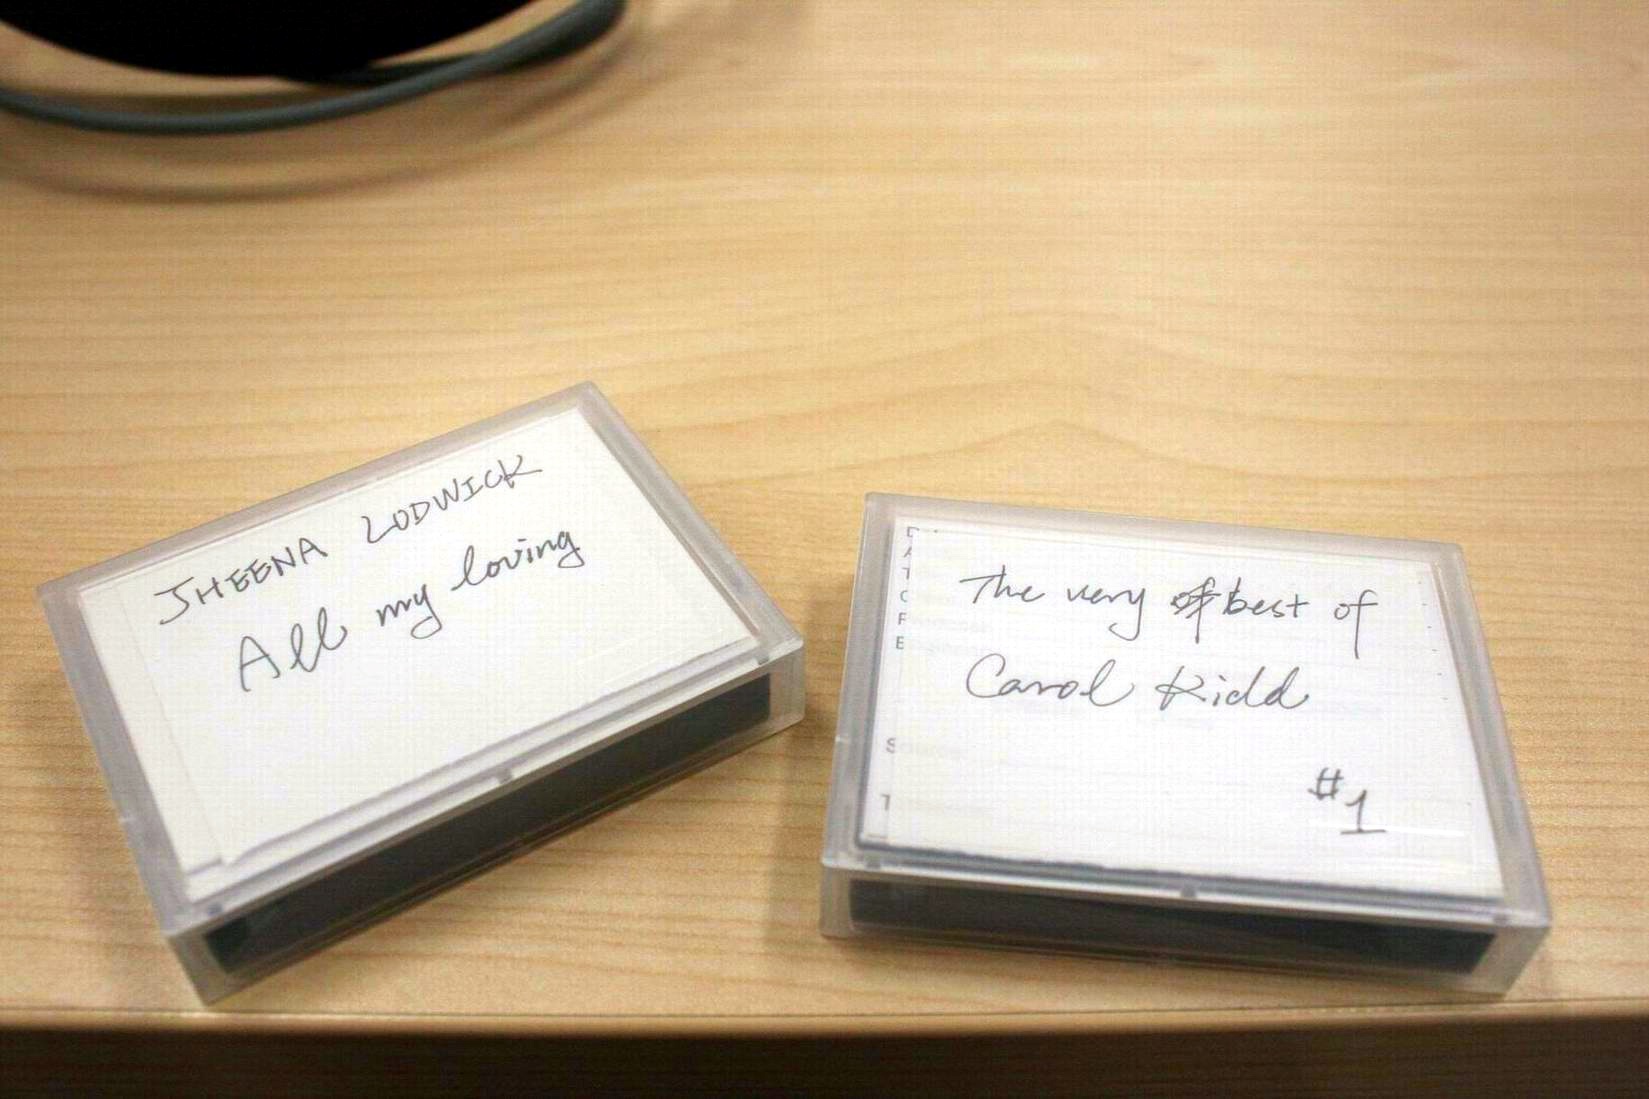 JHEENA LODWICK
All my loving
The very of best of
Carol Kidd
#1